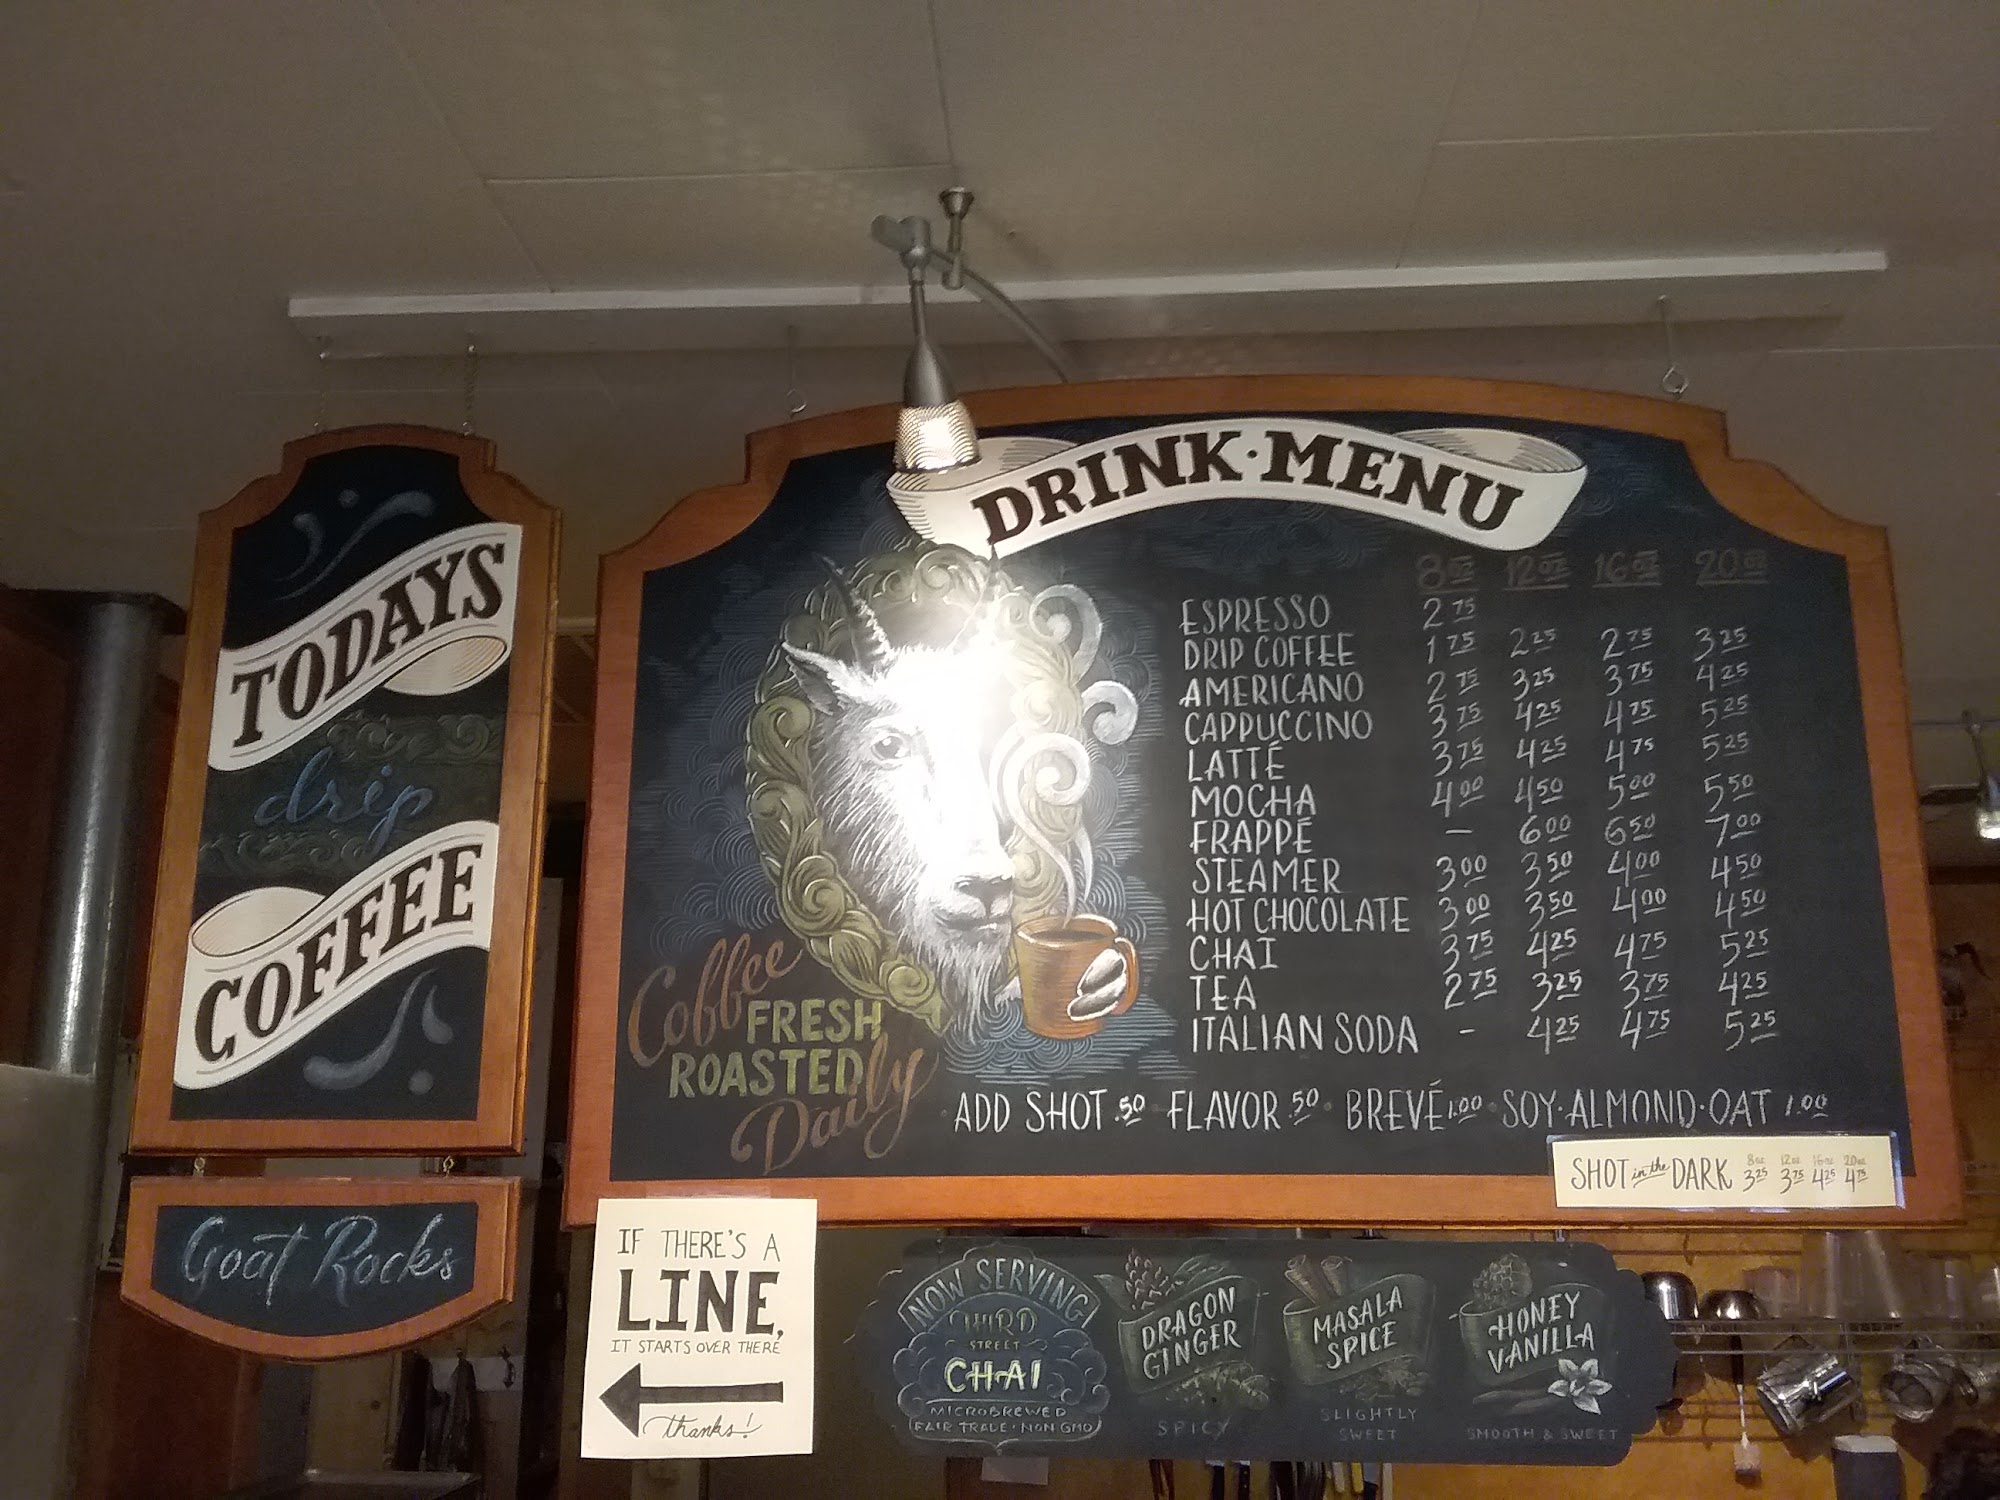 TODAYS
drip
COFFEE
Goat Rocks
DRINK · MENU
8oz 12oz 16oz 20oz
ESPRESSO 2 75
DRIP COFFEE 1 75 2 25 2 75 3 25
AMERICANO 2 75 3 25 3 75 4 25
CAPPUCCINO 3 75 4 25 4 75 5 25
LATTÉ 3 75 4 25 4 75 5 25
MOCHA 4 00 4 50 5 00 5 50
FRAPPÉ – 6 00 6 50 7 00
STEAMER 3 00 3 50 4 00 4 50
HOT CHOCOLATE 3 00 3 50 4 00 4 50
CHAI 3 75 4 25 4 75 5 25
TEA 2 75 3 25 3 75 4 25
ITALIAN SODA – 4 25 4 75 5 25
Coffee
FRESH
ROASTED
Daily
· ADD SHOT .50 · FLAVOR .50 · BREVÉ 1.00 · SOY · ALMOND · OAT 1.00
8oz 12oz 16oz 20oz
SHOT in the DARK 3 25 3 75 4 25 4 75
IF THERE'S A
LINE,
IT STARTS OVER THERE
thanks!
NOW SERVING
THIRD
STREET
CHAI
MICROBREWED
FAIR TRADE · NON GMO
DRAGON
GINGER
SPICY
MASALA
SPICE
SLIGHTLY
SWEET
HONEY
VANILLA
SMOOTH & SWEET